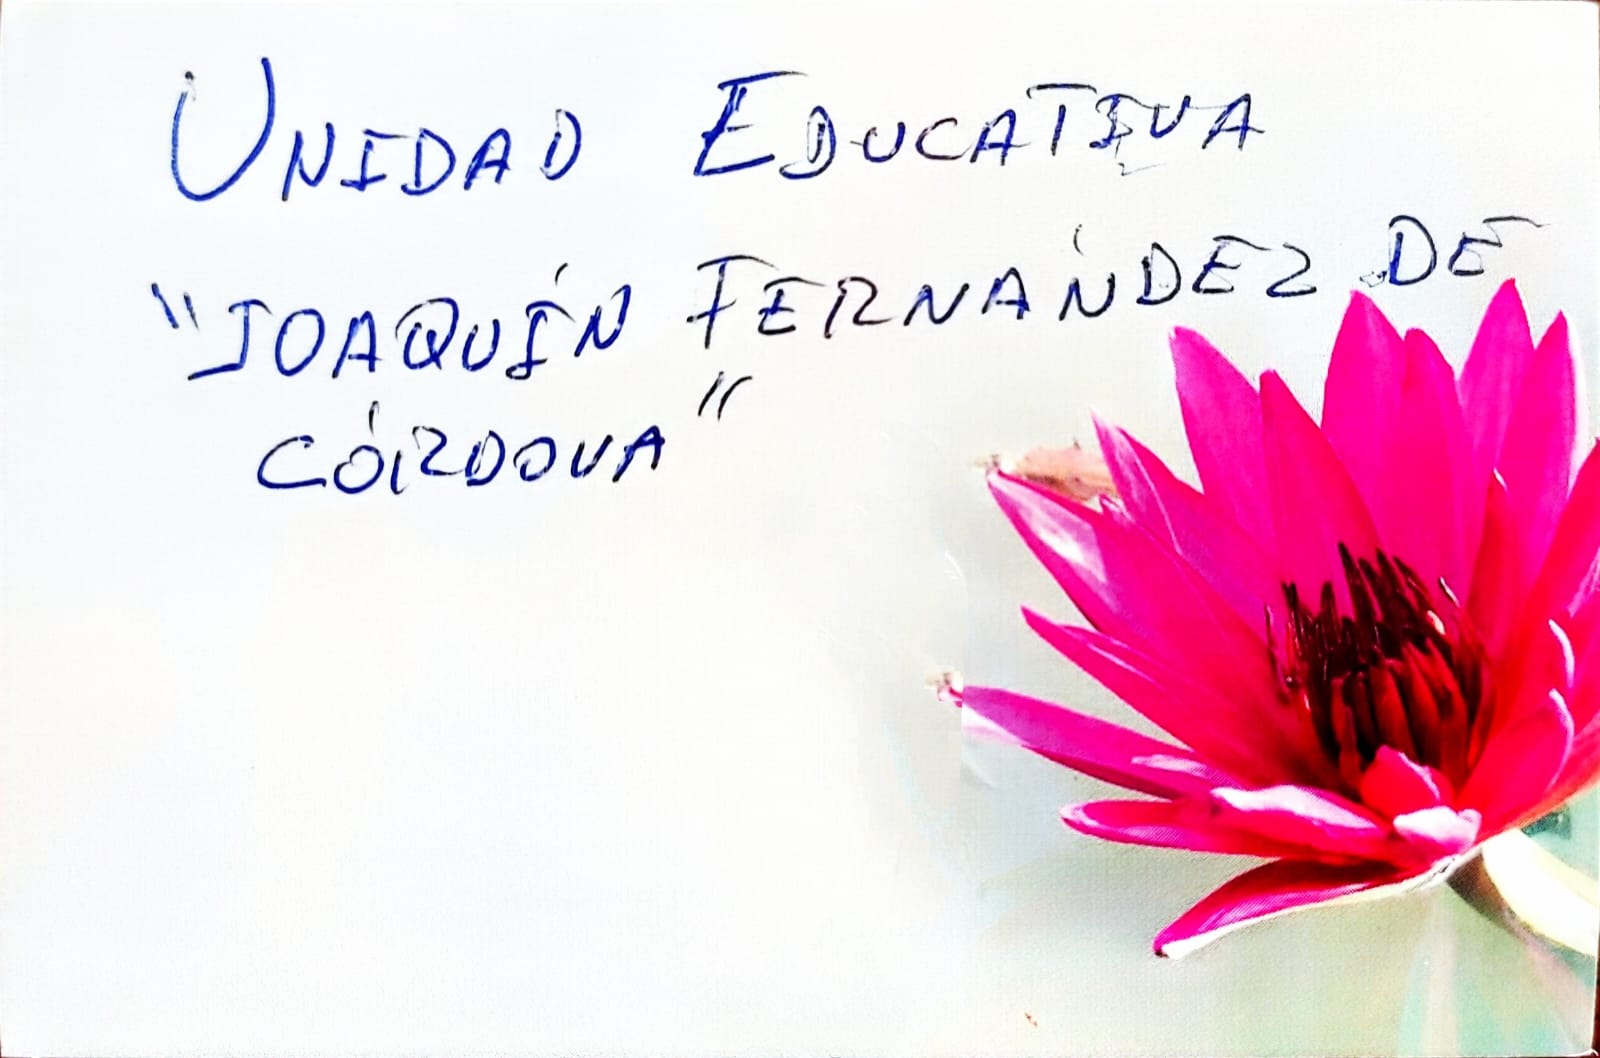 UNIDAD EDUCATIVA
"JOAQUÍN FERNÁNDEZ DE
CÓRDOVA"